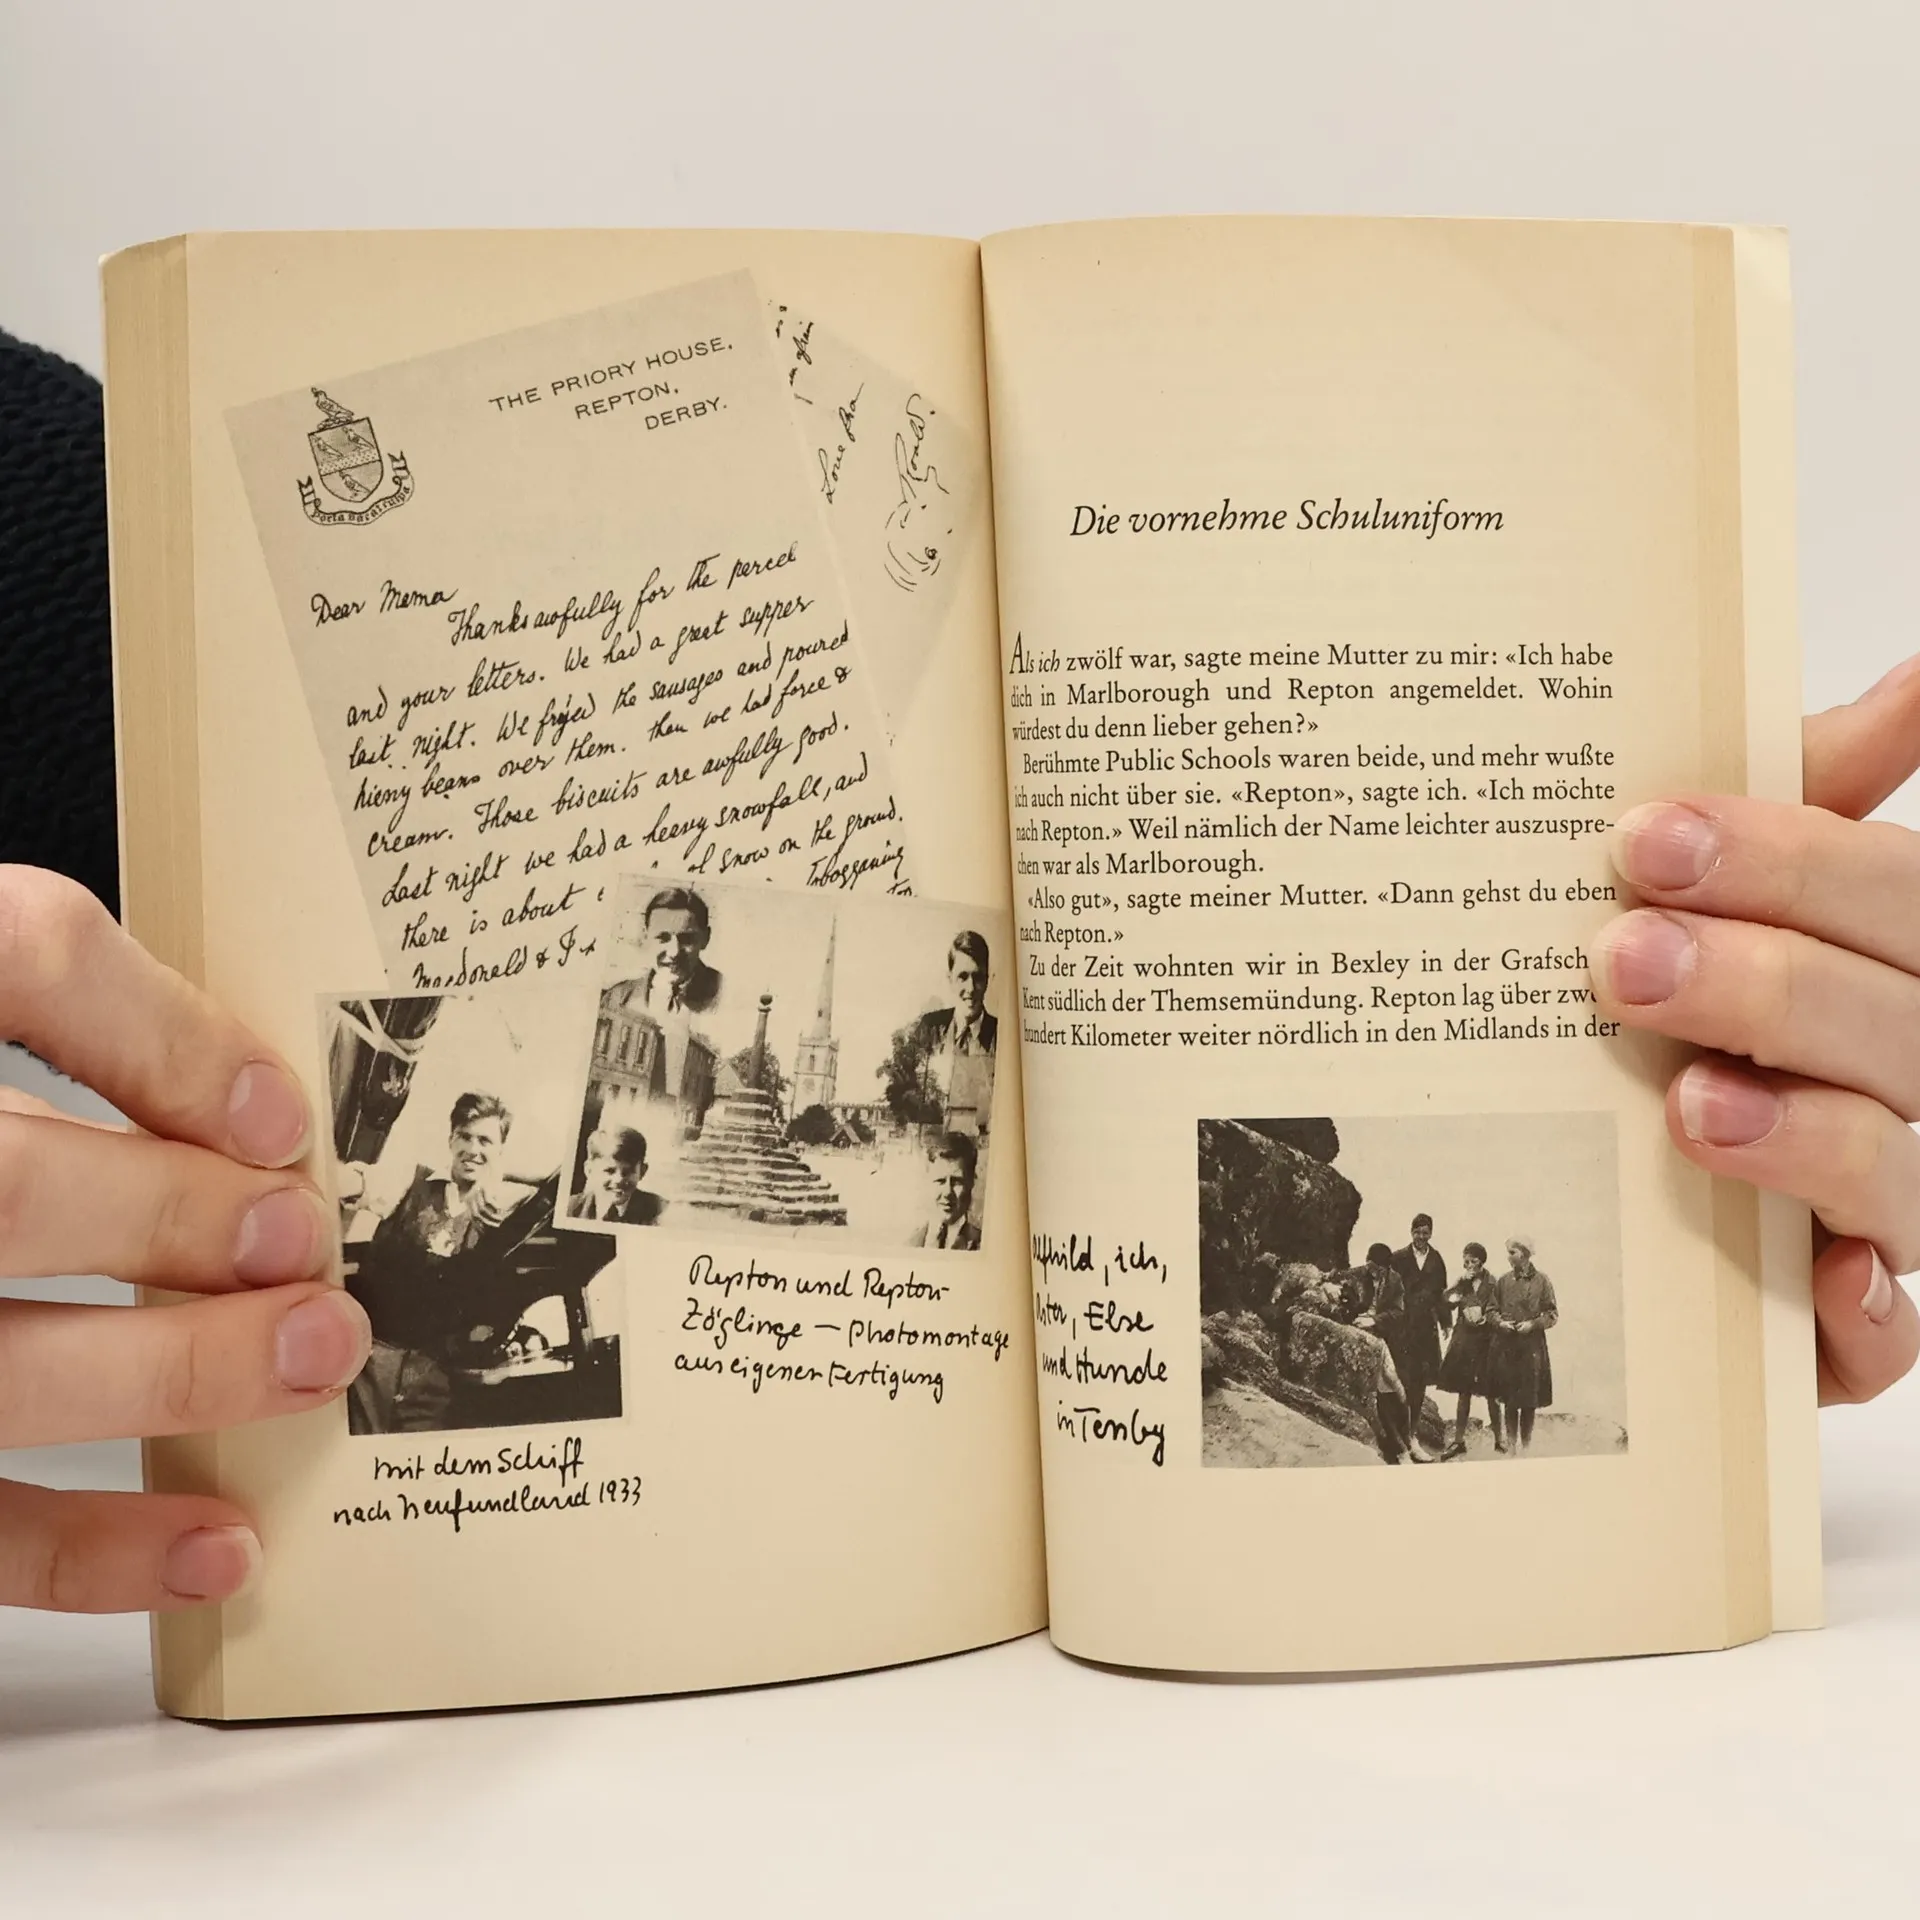 THE PRIORY HOUSE,
REPTON,
DERBY.
Porta vacat culpa
Dear Mama
Thanks awfully for the parcel
and your letters. We had a great supper
last night. We fryed the sausages and poured
hieny beans over them. then we had force &
cream. Those biscuits are awfully good.
Last night we had a heavy snowfall, and
there is about snow on the ground.
Macdonald & I tobogganing
Love from
mit dem Schiff
nach Neufundland 1933
Repton und Repton-
Zöglinge – Photomontage
aus eigener Fertigung
Die vornehme Schuluniform
Als ich zwölf war, sagte meine Mutter zu mir: «Ich habe
dich in Marlborough und Repton angemeldet. Wohin
würdest du denn lieber gehen?»
Berühmte Public Schools waren beide, und mehr wußte
ich auch nicht über sie. «Repton», sagte ich. «Ich möchte
nach Repton.» Weil nämlich der Name leichter auszuspre-
chen war als Marlborough.
«Also gut», sagte meiner Mutter. «Dann gehst du eben
nach Repton.»
Zu der Zeit wohnten wir in Bexley in der Grafsch
Kent südlich der Themsemündung. Repton lag über zwe
hundert Kilometer weiter nördlich in den Midlands in der
Alfhild, ich,
Else
und Hunde
in Tenby